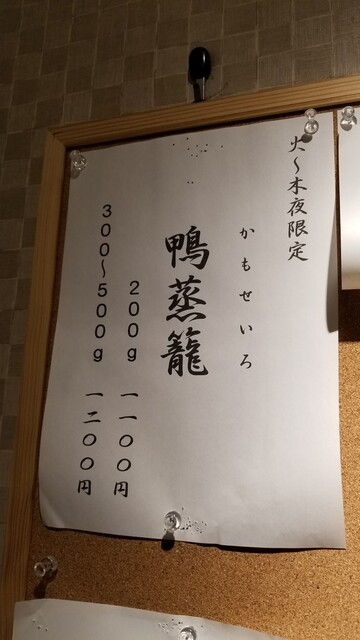 火〜木夜限定
かもせいろ
鴨蒸籠
200g 一一〇〇円
300〜500g 一二〇〇円